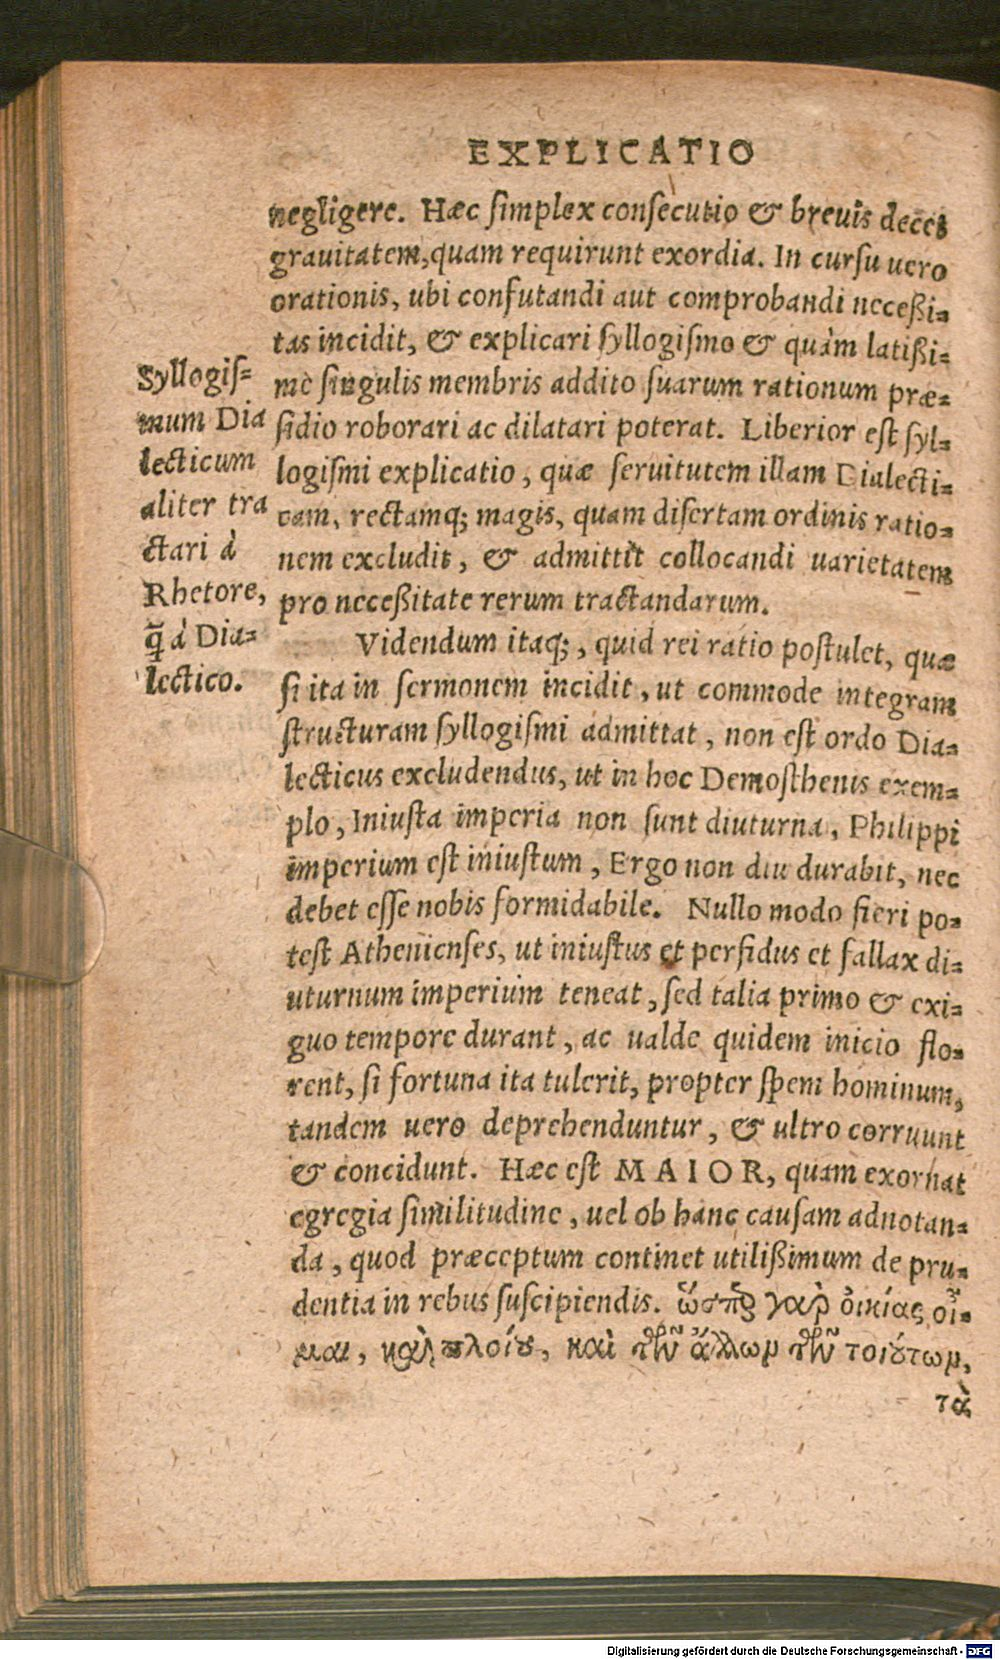 EXPLICATIO
negligere. Hæc ſimplex conſecutio & breuis decet
grauitatem, quam requirunt exordia. In curſu uero
orationis, ubi confutandi aut comprobandi neceßi-
tas incidit, & explicari ſyllogiſmo & quàm latißi-
mè ſingulis membris addito ſuarum rationum præ-
ſidio roborari ac dilatari poterat. Liberior eſt ſyl-
logiſmi explicatio, quæ ſeruitutem illam Dialecti-
cam, rectamq; magis, quam diſertam ordinis ratio-
nem excludit, & admittit collocandi uarietatem
pro neceßitate rerum tractandarum.
Syllogiſ-
mum Dia
lecticum
aliter tra
ctari à
Rhetore,
q̃ à Dia-
lectico.
Videndum itaq;, quid rei ratio poſtulet, quæ
ſi ita in ſermonem incidit, ut commode integram
ſtructuram ſyllogiſmi admittat, non eſt ordo Dia-
lecticus excludendus, ut in hoc Demoſthenis exem-
plo, Iniuſta imperia non ſunt diuturna, Philippi
imperium eſt iniuſtum, Ergo non diu durabit, nec
debet eſſe nobis formidabile. Nullo modo fieri po-
teſt Athenienſes, ut iniuſtus et perfidus et fallax di-
uturnum imperium teneat, ſed talia primo & exi-
guo tempore durant, ac ualde quidem inicio flo-
rent, ſi fortuna ita tulerit, propter ſpem hominum,
tandem uero deprehenduntur, & ultro corruunt
& concidunt. Hæc eſt MAIOR, quam exornat
egregia ſimilitudine, uel ob hanc cauſam adnotan-
da, quod præceptum continet utilißimum de pru-
dentia in rebus ſuſcipiendis. ὥσπερ γαρ̀ οἰκίας οἶ-
μαι, καὶ πλοίου, καὶ τῶν ἄλλων τῶν τοιούτων,
τὰ
Digitalisierung gefördert durch die Deutsche Forschungsgemeinschaft - DFG